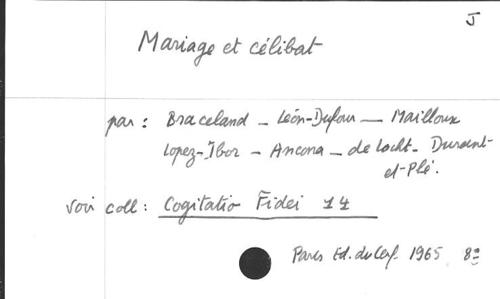 J
Mariage et célibat
par : Braceland - Léon-Dufour - Mailloux
Lopez-Ibor - Ancona - de Locht - Durant-
et-Plé.
voir coll : Cogitatio Fidei 14
Paris Ed. du Cerf. 1965 8º